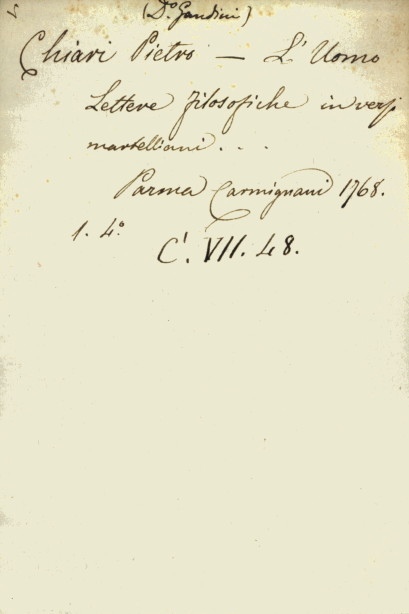 (Do. Gandini)
Chiari Pietro — L'Uomo
Lettere filosofiche in versi
martelliani . . .
Parma Carmignani 1768.
1. 4o
C'. VII. 48.